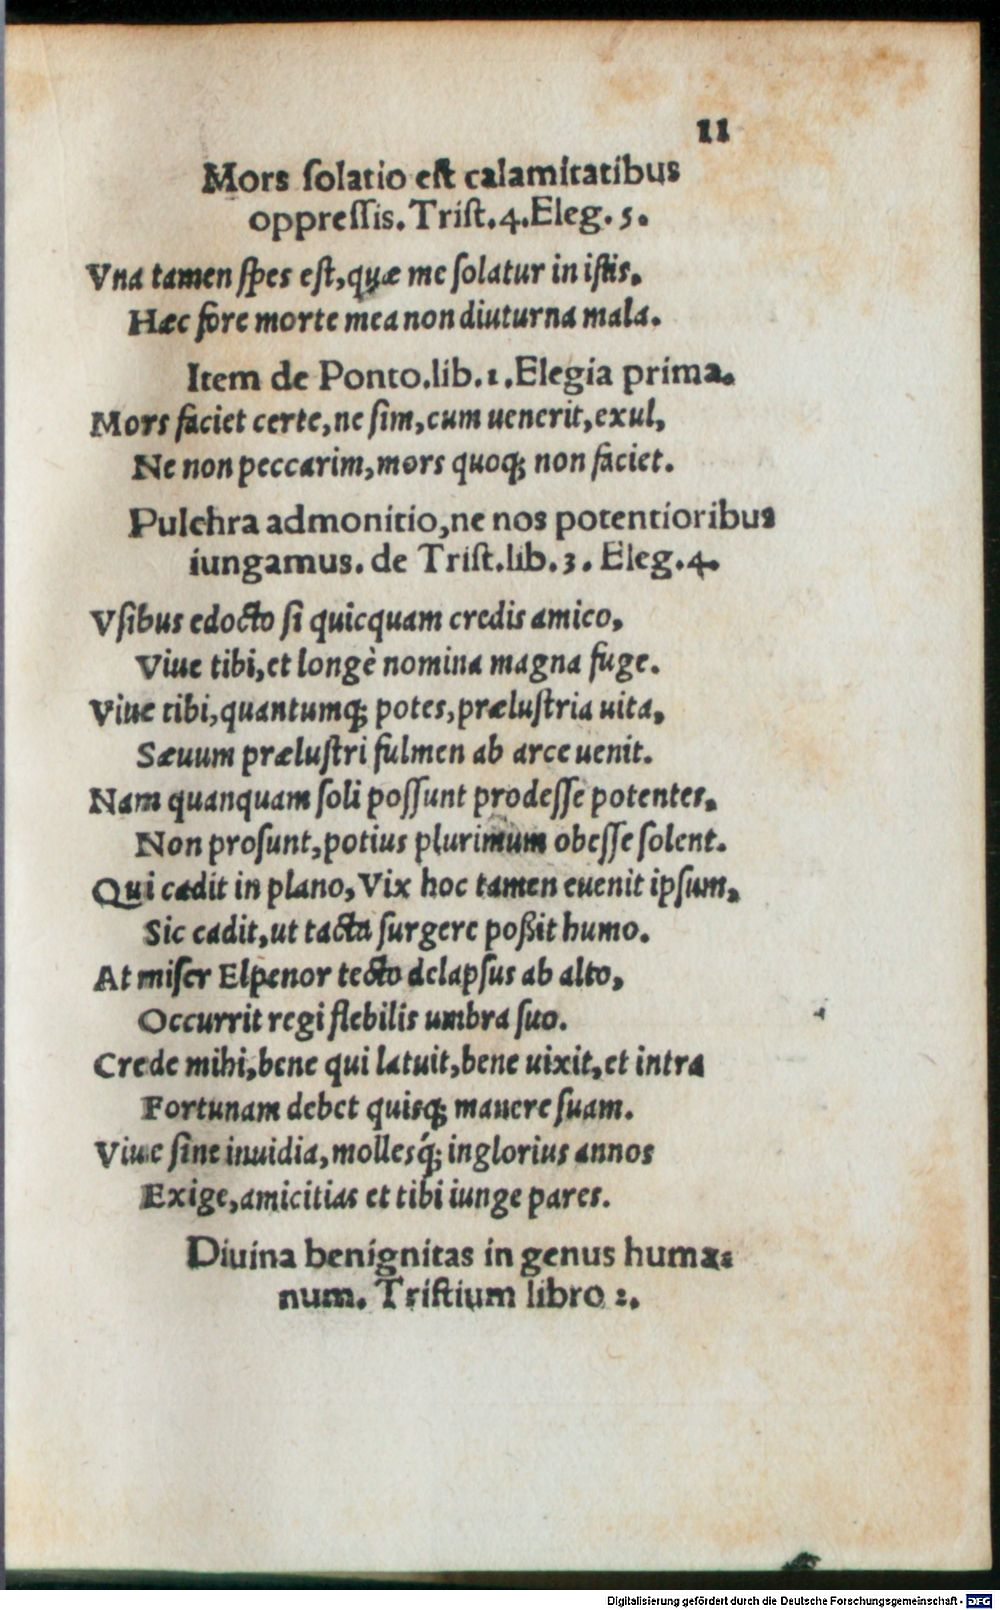 11
Mors ſolatio eſt calamitatibus
oppreſſis. Triſt. 4. Eleg. 5.
Vna tamen ſpes eſt, quæ me ſolatur in iſtis,
Hæc fore morte mea non diuturna mala.
Item de Ponto. lib. 1. Elegia prima.
Mors faciet certe, ne ſim, cum uenerit, exul,
Ne non peccarim, mors quoq; non faciet.
Pulchra admonitio, ne nos potentioribus
iungamus. de Triſt. lib. 3. Eleg. 4.
Vſibus edocto ſi quicquam credis amico,
Viue tibi, et longè nomina magna fuge.
Viue tibi, quantumq; potes, præluſtria uita,
Sæuum præluſtri fulmen ab arce uenit.
Nam quanquam ſoli poſſunt prodeſſe potentes,
Non proſunt, potius plurimum obeſſe ſolent.
Qui cadit in plano, Vix hoc tamen euenit ipſum,
Sic cadit, ut tacta ſurgere poßit humo.
At miſer Elpenor tecto delapſus ab alto,
Occurrit regi flebilis umbra ſuo.
Crede mihi, bene qui latuit, bene uixit, et intra
Fortunam debet quisq; manere ſuam.
Viue ſine inuidia, mollesq́; inglorius annos
Exige, amicitias et tibi iunge pares.
Diuina benignitas in genus huma-
num. Triſtium libro 2.
Digitalisierung gefördert durch die Deutsche Forschungsgemeinschaft - DFG